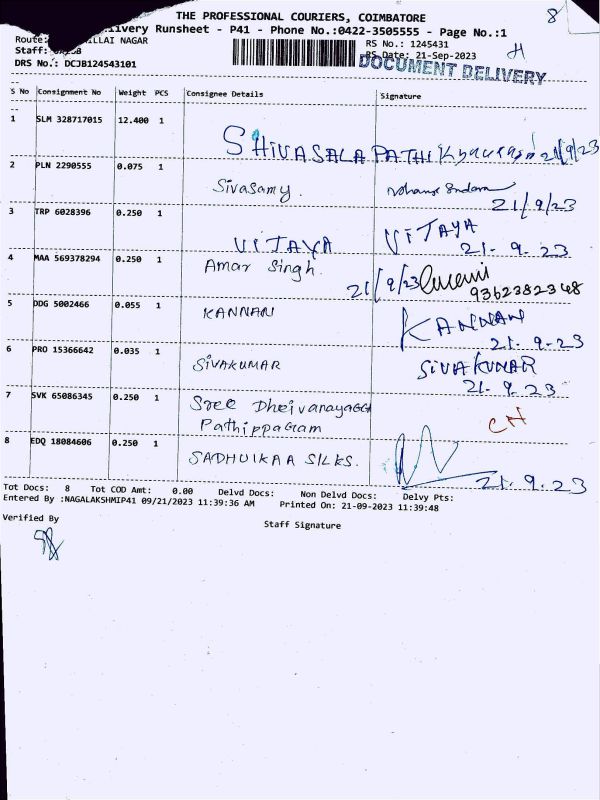 THE PROFESSIONAL COURIERS, COIMBATORE
8
Delivery Runsheet - P41 - Phone No.:0422-3505555 - Page No.:1
Route: ILLAI NAGAR
RS No.: 1245431
H
Staff:
RS Date: 21-Sep-2023
DRS No.: DCJB124543101
DOCUMENT DELIVERY
S No Consignment No Weight PCS Consignee Details Signature
1 SLM 328717015 12.400 1
SHIVASALAPATHI 21/9/23
2 PLN 2290555 0.075 1 Sivasamy.
21/9/23
3 TRP 6028396 0.250 1 VIJAYA VIJAYA
21-9.23
4 MAA 569378294 0.250 1 Amar Singh. 21/9/23
9362382348
5 DDG 5002466 0.055 1 KANNAN KANNAN
21.9-23
6 PRO 15366642 0.035 1 SIVAKUMAR SIVAKUMAR
21.9.23
7 SVK 65086345 0.250 1 Sree Dheivanayaggi
Pathippagam CH
8 EDQ 18084606 0.250 1 SADHUIKAA SILKS.
21.9.23
Tot Docs: 8 Tot COD Amt: 0.00 Delvd Docs: Non Delvd Docs: Delvy Pts:
Entered By :NAGALAKSHMIP41 09/21/2023 11:39:36 AM Printed On: 21-09-2023 11:39:48
Verified By
Staff Signature